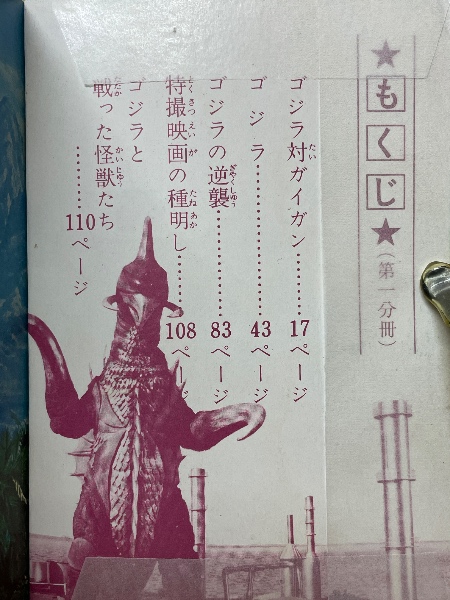 ★もくじ★(第一分冊)
ゴジラ対ガイガン………17ページ
ゴジラ………………43ページ
ゴジラの逆襲…………83ページ
特撮映画の種明し………108ページ
ゴジラと
戦った怪獣たち
…………110ページ